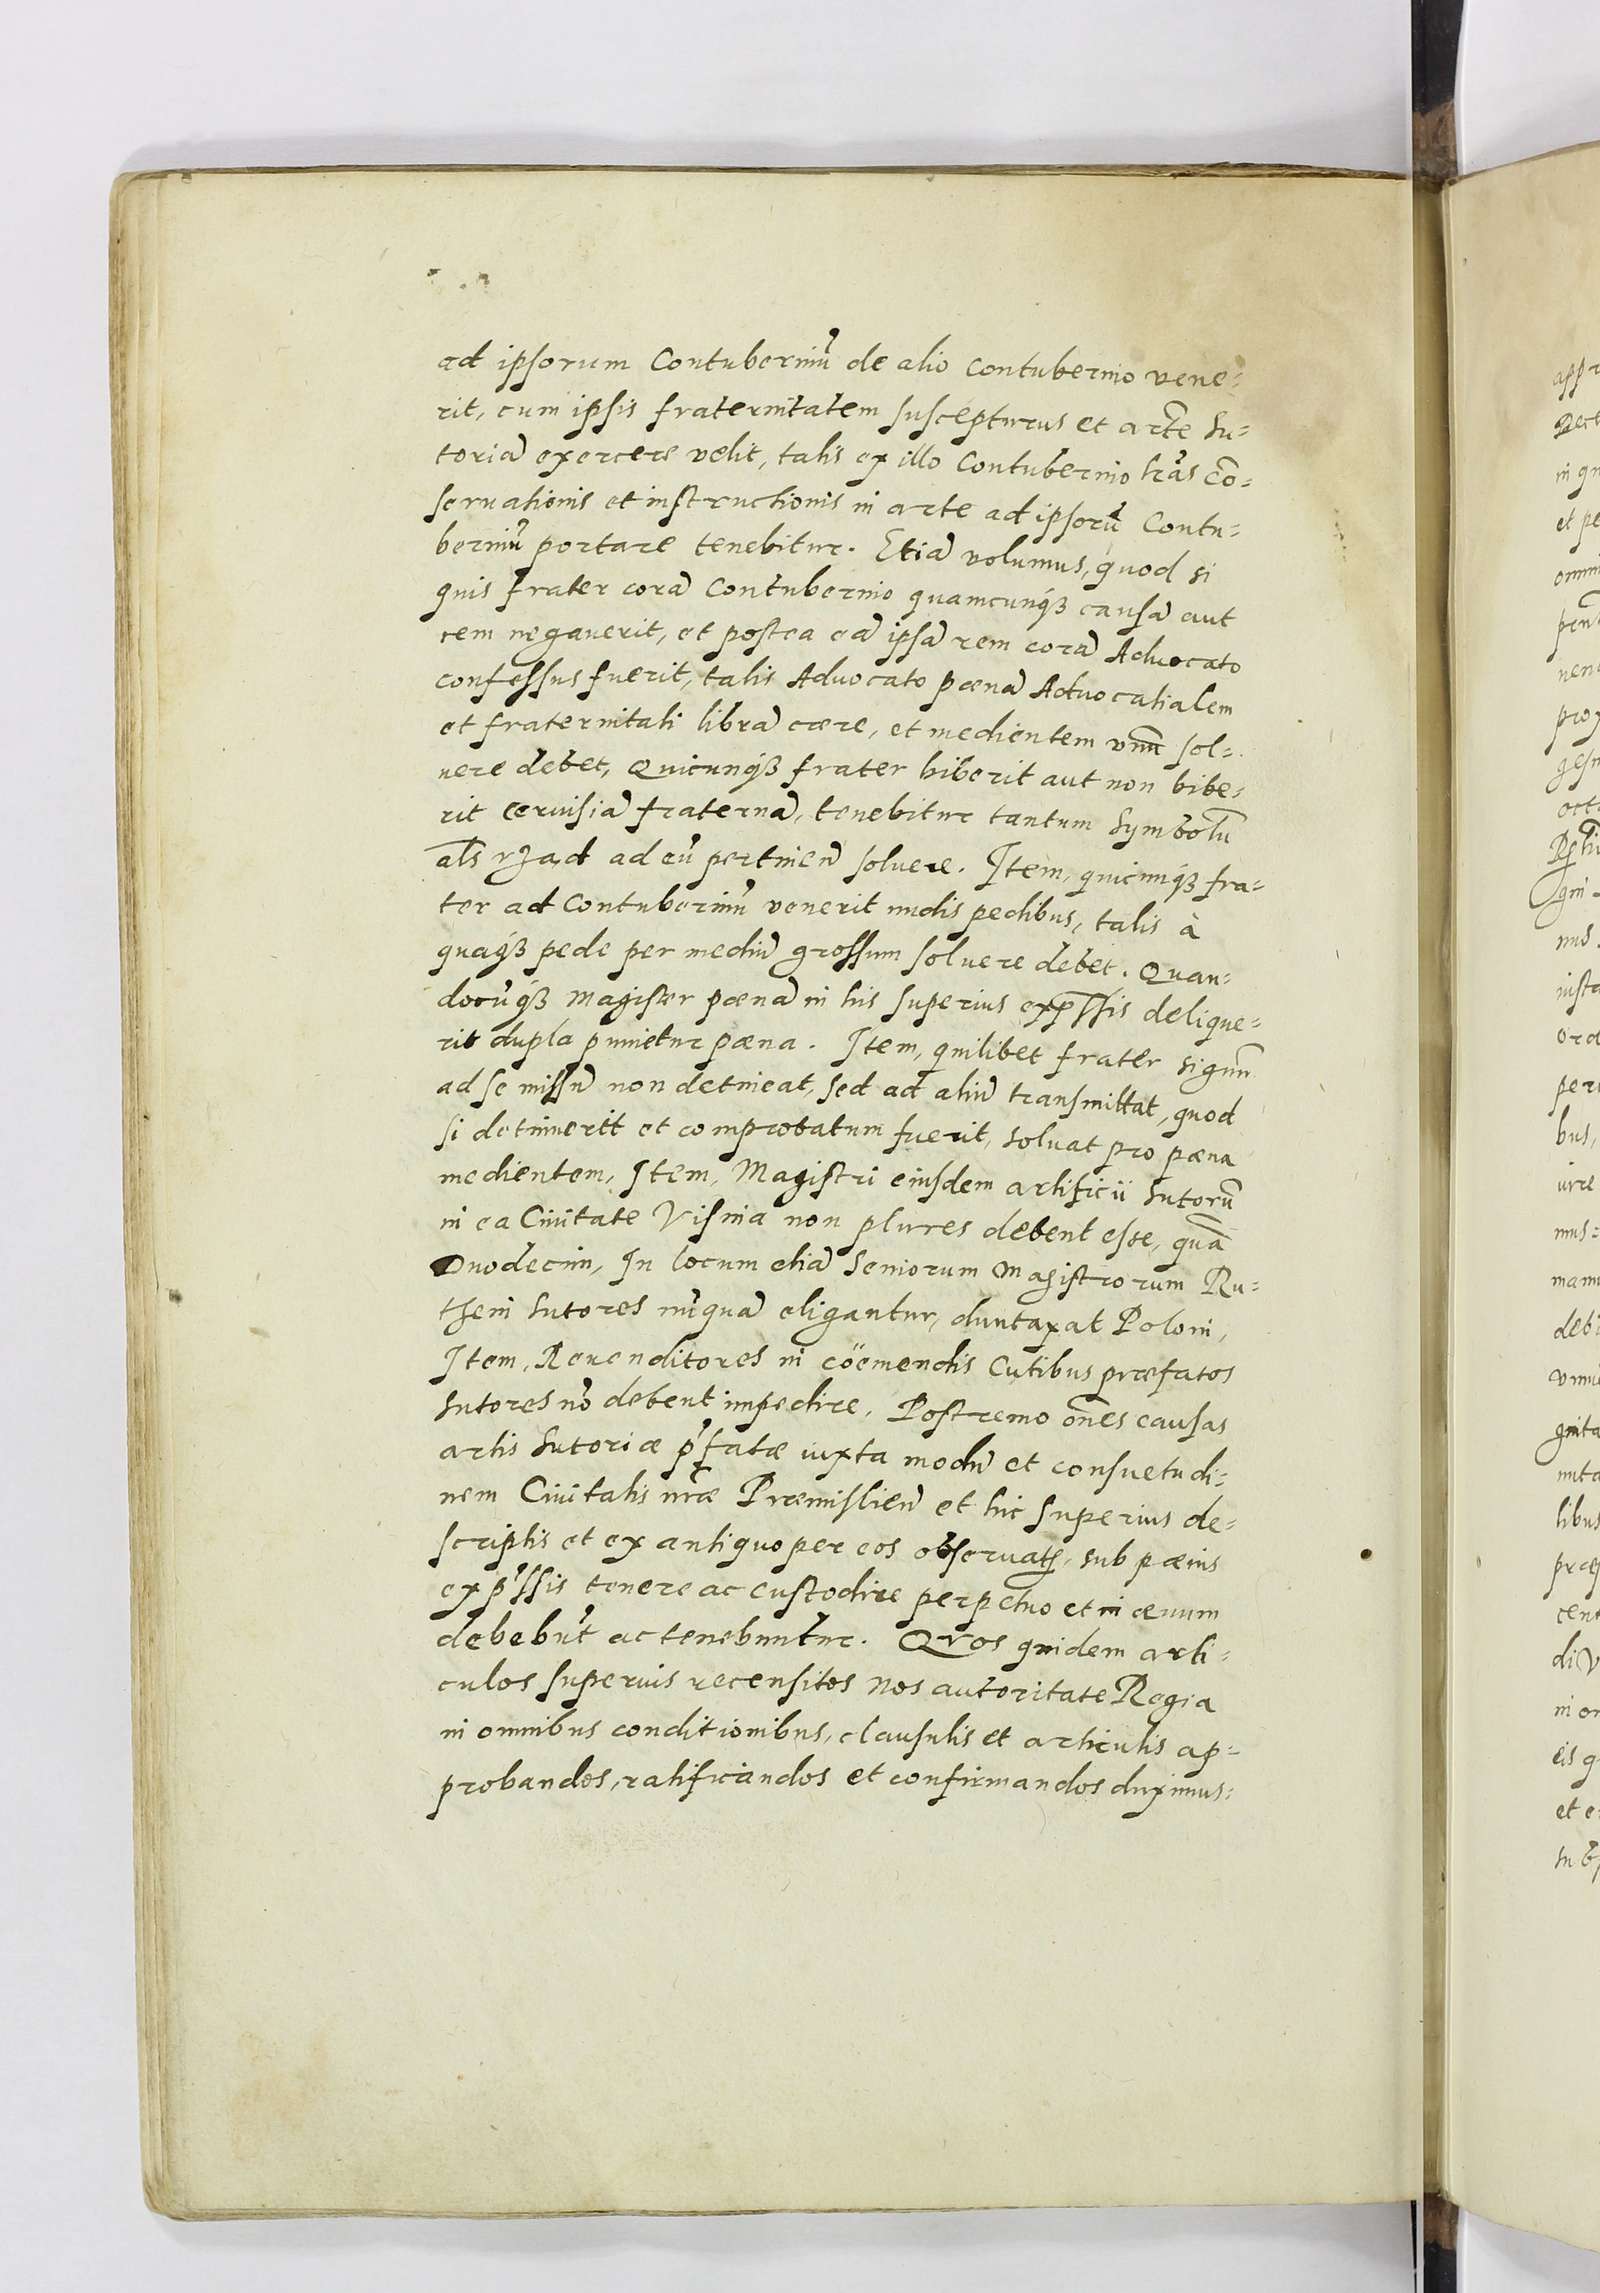 ad ipsorum Contuberniũ de alio Contubernio vene=
rit, cum ipsis fraternitatem suscepturus et artẽ su=
toriã exercere velit, talis ex illo Contubernio lr̃as cõ=
seruationis et instructionis in arte ad ipsorũ Contu=
berniũ portare tenebitur. Etiã volumus, quod si
quis frater corã Contubernio quamcunqꝫ causã aut
rem negauerit, et postea eã ipsã rem corã Aduocato
confessus fuerit, talis Aduocato pœnã Aduocatialem
et fraternitati librã cære, et medientem vnũ sol=
uere debet, Quicunqꝫ frater biberit aut non bibe=
rit Ceruisiã fraternã, tenebitur tantum Symbolũ
al̃s rząd ad eũ pertineñ soluere. Item, quicunqꝫ fra=
ter ad Contuberniũ venerit nudis pedibus, talis à
quaqꝫ pede per mediũ grossum soluere debet. Quan=
docũqꝫ Magister pœnã in his superius exp̃ssis delique=
rit dupla punietur pœna. Item, quilibet frater signũ
ad se missũ non detineat, sed ad aliũ transmittat, quod
si detinuerit et comprobatum fuerit, soluat pro pœna
medientem, Item, Magistri eiusdem artificii Sutorũ
in ea Ciuitate Visnia non plures debent esse, quã
Duodecim, In locum etiã Seniorum Magistrorum Ru=
theni Sutores nũquã eligantur, duntaxat Poloni,
Item, Reuenditores in cöemendis Cutibus præfatos
Sutores nõ debent impedire, Postremo oẽs causas
artis Sutoriæ p̃fatæ iuxta modũ et consuetudi=
nem Ciuitatis nr̃æ Præmislieñ et hic superius de=
scriptis et ex antiquo per eos obseruatꝭ, sub pœnis
exp̃ssis tenere ac custodire perpetuo et in æuum
debebũt ac tenebuntur. Qvos quidem arti=
culos superius recensitos Nos autoritate Regia
in omnibus conditionibus, clausulis et articulis ap=
probandos, ratificandos et confirmandos duximus=